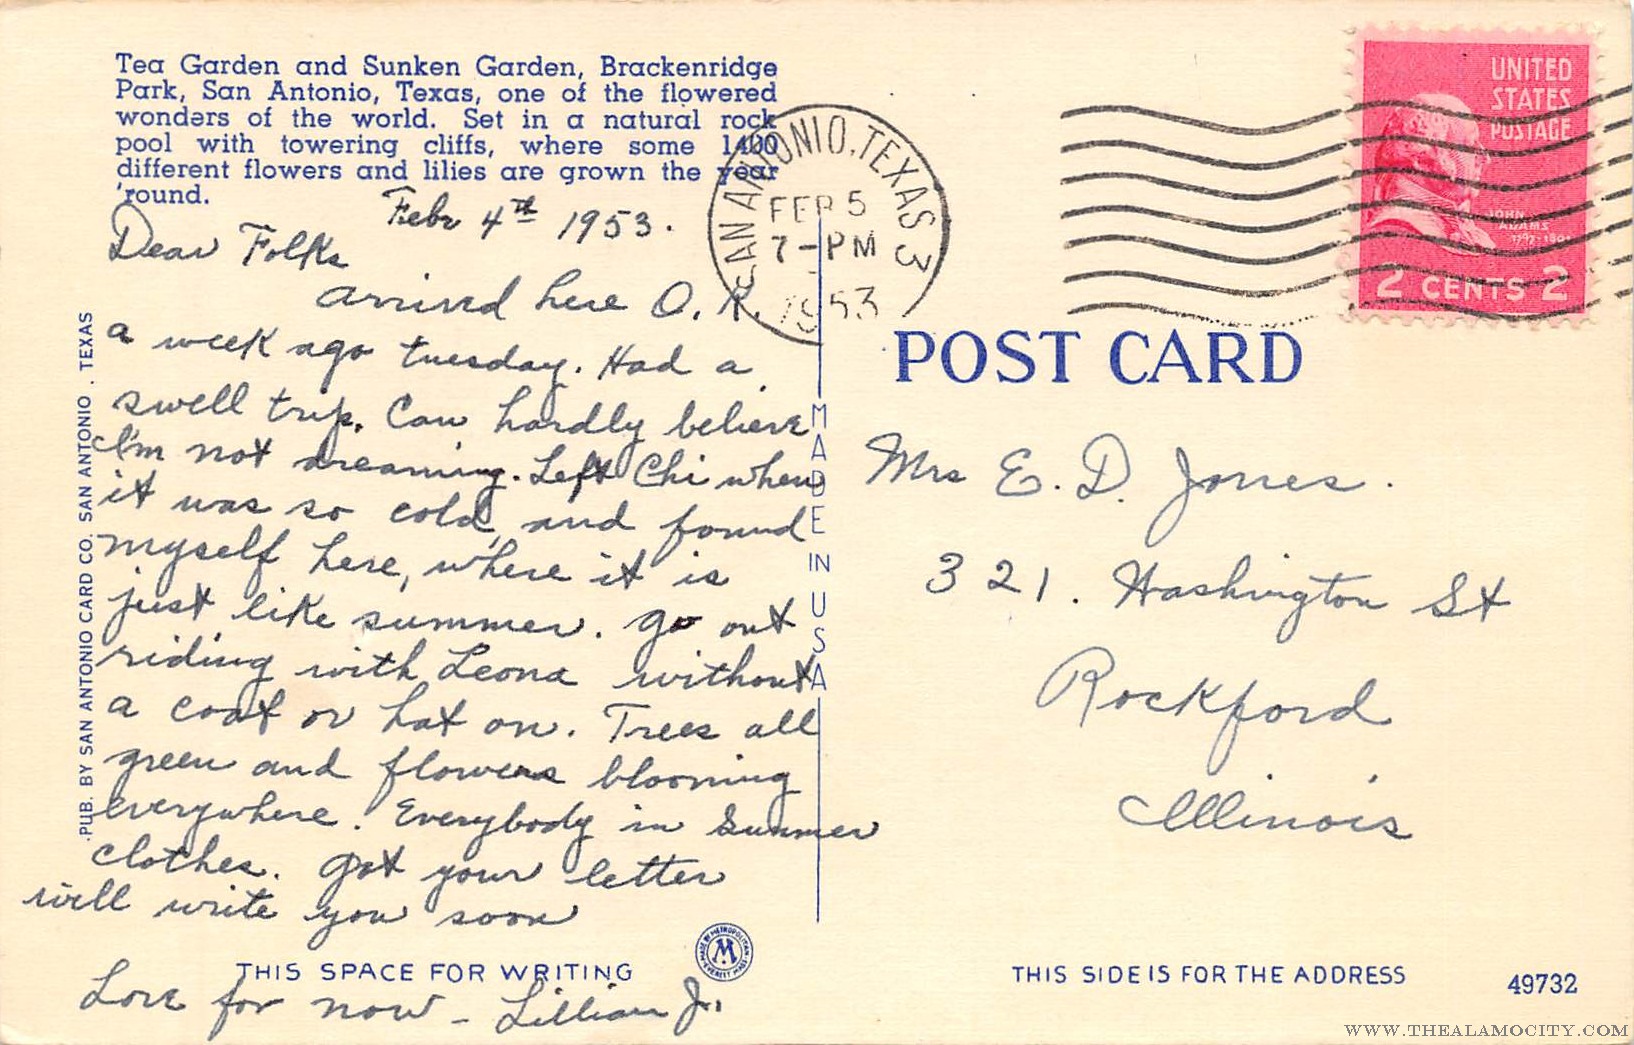 Tea Garden and Sunken Garden, Brackenridge
Park, San Antonio, Texas, one of the flowered
wonders of the world. Set in a natural rock
pool with towering cliffs, where some 1400
different flowers and lilies are grown the year
'round.
Febr 4th 1953.
Dear Folks
arrived here O. K.
a week ago tuesday. Had a
swell trip. Can hardly believe
I'm not dreaming. Left Chi when
it was so cold, and found
myself here, where it is
just like summer. go out
riding with Leona without
a coat or hat on. Trees all
green and flowers blooming
everywhere. Everybody in Summer
clothes. got your letter
will write you soon
THIS SPACE FOR WRITING
Love for now - Lillian J.
PUB. BY SAN ANTONIO CARD CO. SAN ANTONIO . TEXAS
MADE IN USA
MADE BY METROPOLITAN
M
EVERETT MASS
SAN ANTONIO, TEXAS 3
FEB 5
7-PM
1953
UNITED
STATES
POSTAGE
JOHN
ADAMS
1797-1801
2 CENTS 2
POST CARD
Mrs E. D. Jones.
321. Washington St
Rockford
Illinois
THIS SIDE IS FOR THE ADDRESS
49732
WWW.THEALAMOCITY.COM